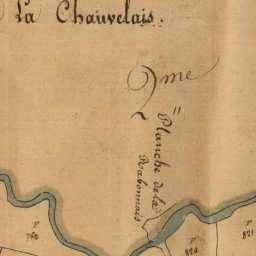 la Chauvelais.
2me
"Planche de la
Rabonnais
824
821